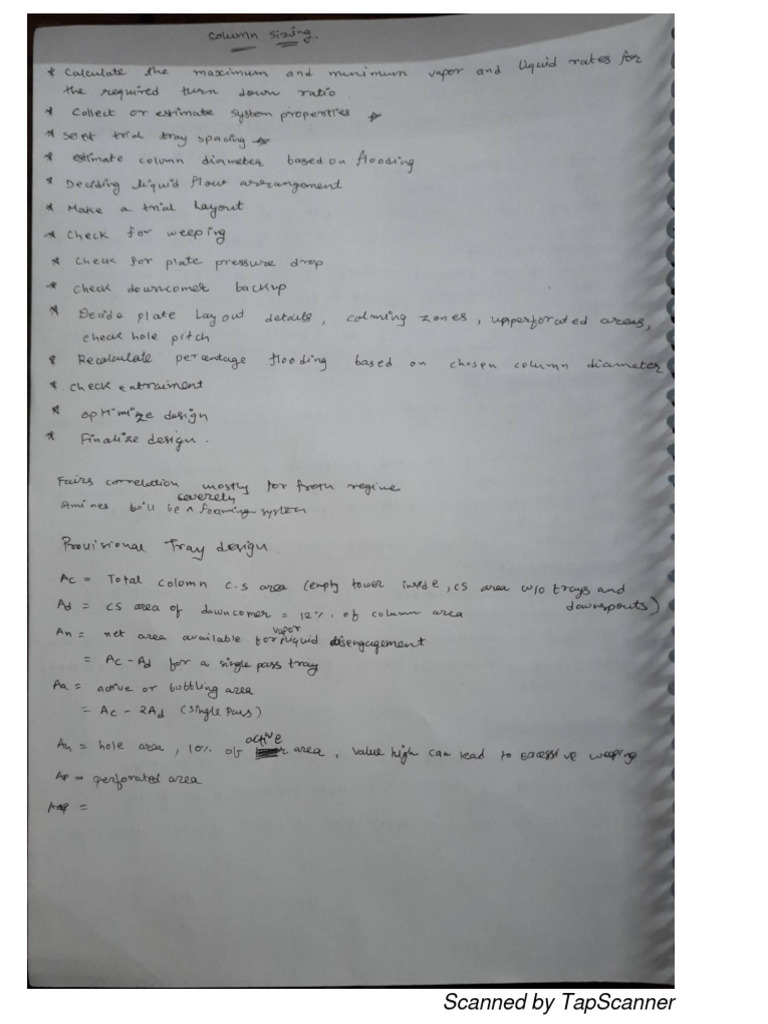 Column sizing.
* Calculate the maximum and minimum vapor and liquid rates for
the required turn down ratio.
* Collect or estimate system properties
* Select trial tray spacing
* estimate column diameter based on flooding
* Deciding liquid flow arrangement
* Make a trial layout
* Check for weeping
* Check for plate pressure drop
* check downcomer backup
* Decide plate layout details, calming zones, unperforated areas,
check hole pitch
* Recalculate percentage flooding based on chosen column diameter
* check entrainment
* optimize design
* Finalize design.
Fairs correlation mostly for froth regime
severely
Amines will be a foaming system
Provisional Tray design
Ac = Total column c.s area (empty tower inside, cs area w/o trays and
downspouts)
Ad = cs area of downcomer = 12% of column area
vapor
An = net area available for liquid disengagement
= Ac - Ad for a single pass tray
Aa = active or bubbling area
= Ac - 2Ad (single pass)
active
Ah = hole area, 10% of area, value high can lead to excessive weeping
Ap = perforated area
Aap =
Scanned by TapScanner